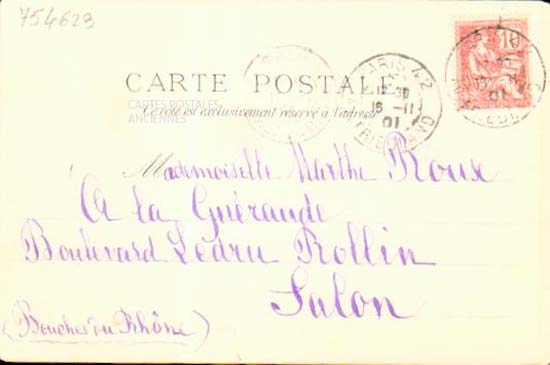 754623
10
CARTE POSTALE
CARTES POSTALES
ANCIENNES
Ce côté est exclusivement réservé à l'adresse
PARIS 42
12 30
16 -11
01
Mademoiselle Marthe Roux
A la Guérande
Boulevard Ledru Rollin
Salon
(Bouches du Rhône)